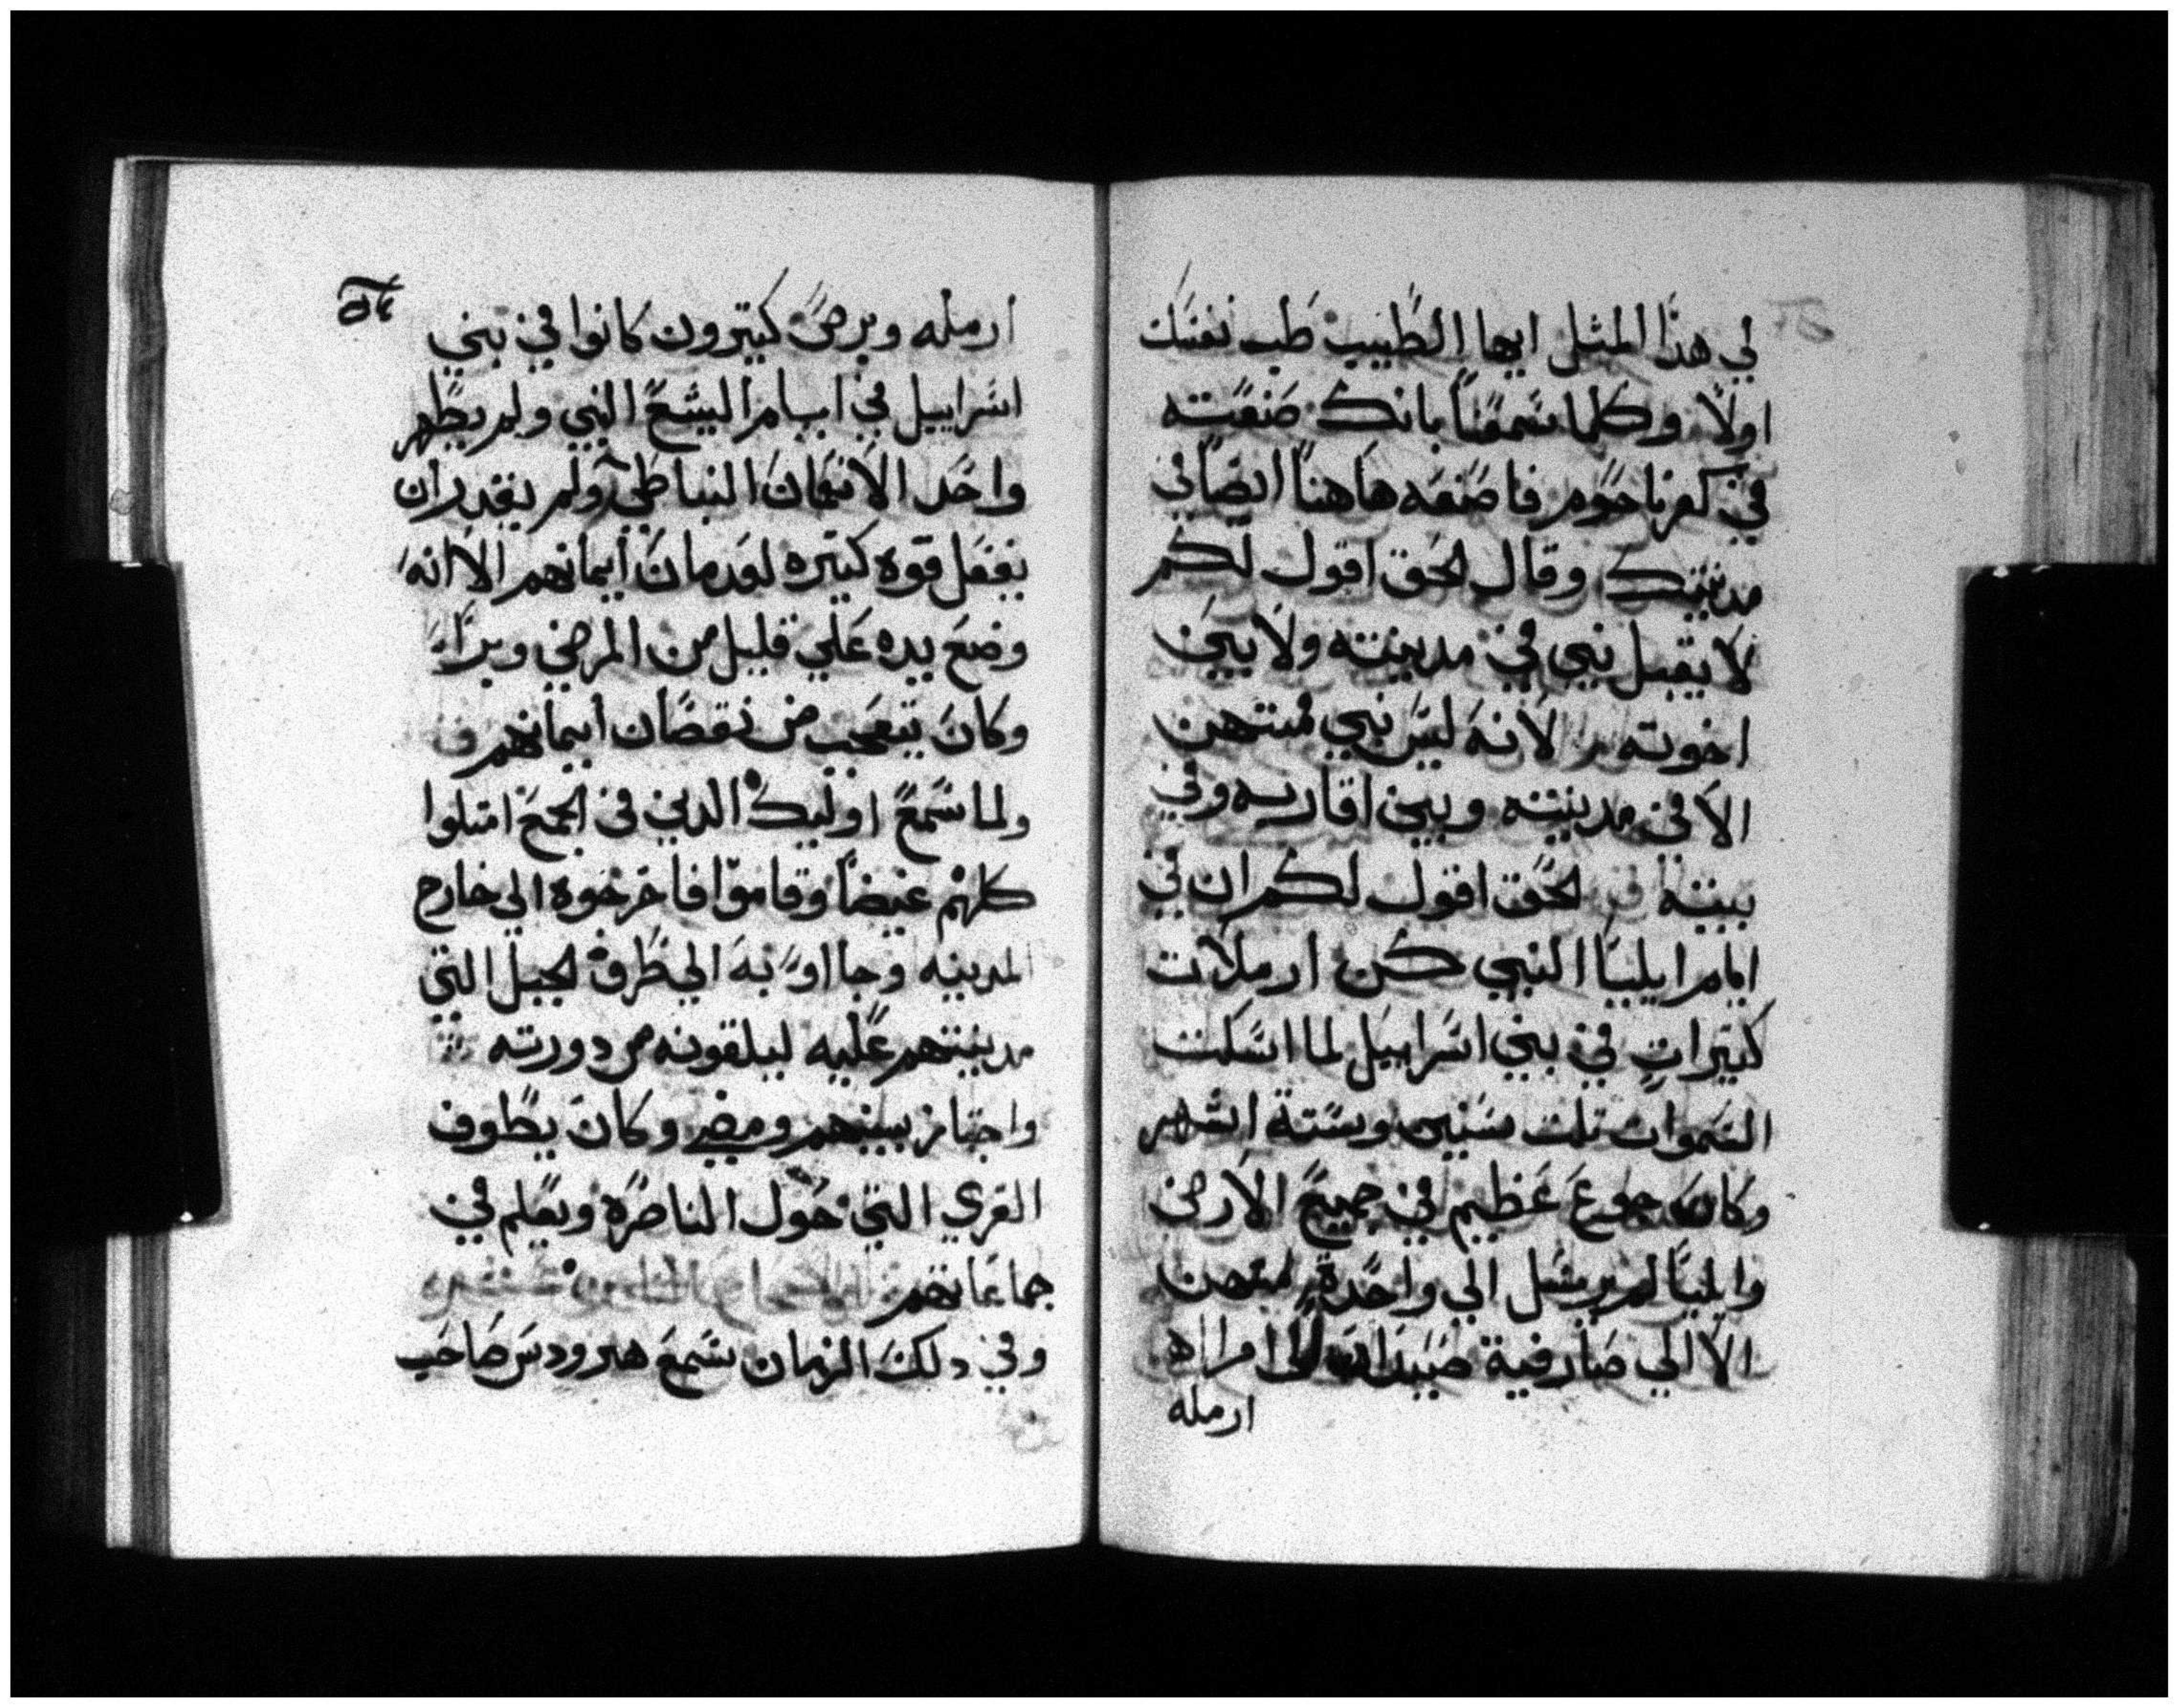 لي هذا المثل ايها الطبيب طب نفسك
اولا وكلما سمعنا بانك صنعته
في كفرناحوم فاصنعه هاهنا ايضا في
مدينتك وقال الحق اقول لكم
لا يقبل نبي في مدينته ولا بين
اخوته لانه ليس نبي ممتهن
الا في مدينته وبين اقاربه وفي
بيته الحق اقول لكم ان في
ايام ايليا النبي كن ارملات
كتيرات في بني اسراييل لما اسكت
السموات تلت سنين وستة اشهر
وكان جوع عظيم في جميع الارض
وايليا لم يرسل الي واحدة منهن
الا الي صارفية صيدا الى امراه
ارمله
ارمله وبرص كتيرون كانوا في بني
اسراييل في ايام اليشع النبي ولم يطهر
واحد الا نعمان النباطي ولم يقدر ان
يفعل قوه كتيره لعدمان ايمانهم الا انه
وضع يده علي قليل من المرضي وبراء
وكان يتعجب من نقصان ايمانهم
ولما سمع اوليك الدين في المجمع امتلوا
كلهم غيضا وقاموا فاخرجوه الي خارج
المدينه وجااوا به الي طرف الجبل التي
مدينتهم عليه ليلقونه من دورته
واجتاز بينهم ومضي وكان يطوف
القري التي حول الناصرة ويعلم في
جماعاتهم
وفي دلك الزمان سمع هيرودس صاحب